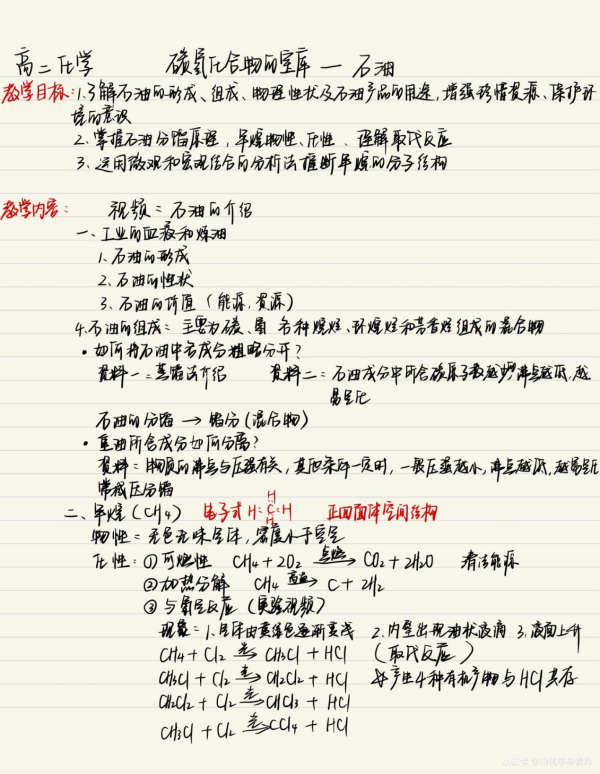 高二化学 碳氢化合物的宝库 — 石油
教学目标:1.了解石油的形成、组成、物理性状及石油产品的用途,增强珍惜资源、保护环
境的意识
2.掌握石油分馏原理,甲烷物性、化性、理解取代反应
3、运用微观和宏观结合的分析法推断甲烷的分子结构
教学内容: 视频:石油的介绍
一、工业的血液和炼油
1.石油的形成
2、石油的性状
3、石油的价值(能源,资源)
4.石油的组成:主要为碳、氢 各种烷烃、环烷烃和芳香烃组成的混合物
•如何将石油中各成分粗略分开?
资料一:蒸馏法介绍 资料二:石油成分中所含碳原子数越少沸点越低,越
易气化
石油的分馏 → 馏分(混合物)
•重油所含成分如何分离?
资料:物质的沸点与压强有关,其他条件一定时,一般压强越小,沸点越低,越易气化
常减压分馏
二、甲烷(CH4) 电子式 H:C:H 正四面体空间结构
H
H
物性:无色无味气体,密度小于空气
化性:①可燃性 CH4+2O2 点燃→ CO2+2H2O 清洁能源
②加热分解 CH4 高温→ C+2H2
③与氯气反应(实验视频)
现象:1.气体由黄绿色逐渐变浅 2.内壁出现油状液滴 3.液面上升
CH4+Cl2 光→ CH3Cl+HCl (取代反应)
CH3Cl+Cl2 光→ CH2Cl2+HCl 产生4种有机产物与HCl共存
CH2Cl2+Cl2 光→ CHCl3+HCl
CH3Cl+Cl2 光→ CCl4+HCl